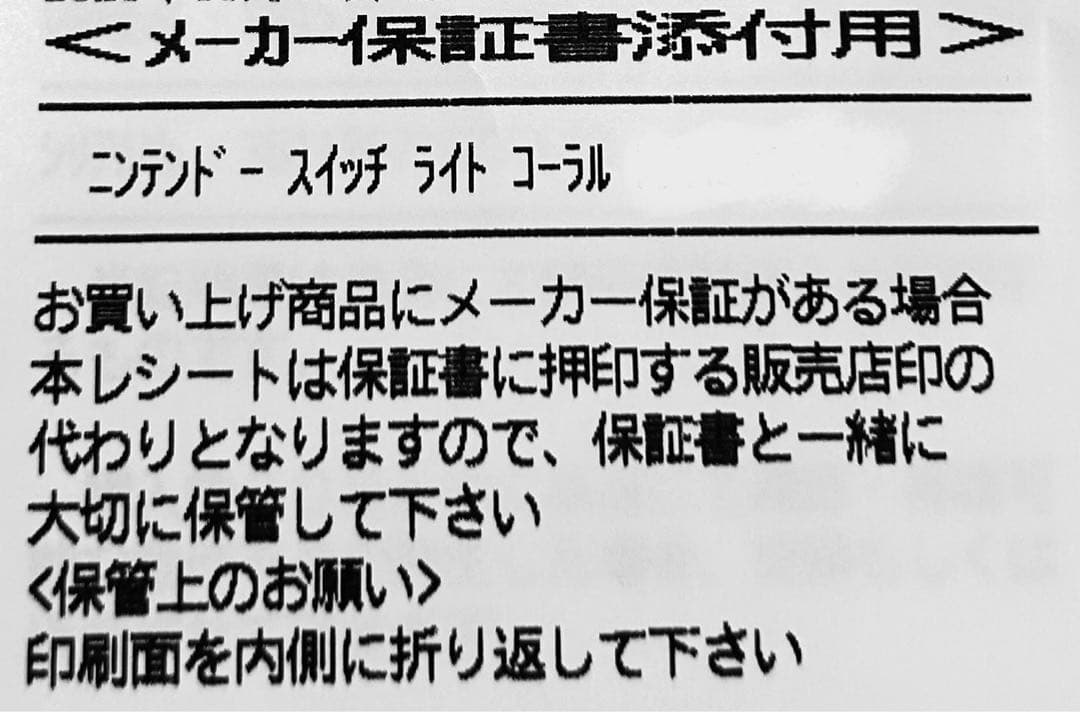 ＜メーカー保証書添付用＞
ﾆﾝﾃﾝﾄﾞｰ ｽｲｯﾁ ﾗｲﾄ ｺｰﾗﾙ
お買い上げ商品にメーカー保証がある場合
本レシートは保証書に押印する販売店印の
代わりとなりますので、保証書と一緒に
大切に保管して下さい
<保管上のお願い>
印刷面を内側に折り返して下さい